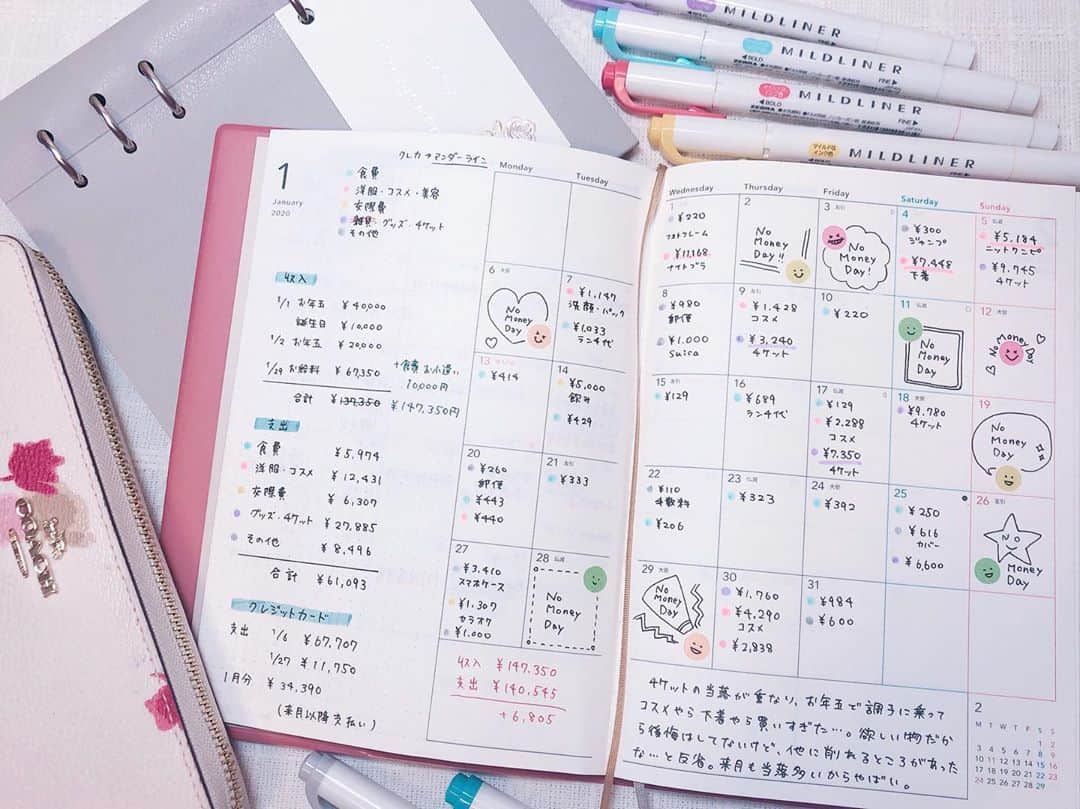 MILDLINER
BOLD
FINE
MILDLINER
BOLD
FINE
MILDLINER
BOLD
FINE
マイルドな
インク色
MILDLINER
1
January
2020
クレカ→アンダーライン
食費
洋服・コスメ・美容
交際費
雑貨 グッズ・チケット
その他
収入
1/1 お年玉 ¥40,000
誕生日 ¥10,000
1/2 お年玉 ¥20,000
1/29 お給料 ¥67,350
+食費 お小遣い
10,000円
合計 ¥137,350 ¥147,350円
支出
食費 ¥5,974
洋服・コスメ ¥12,431
交際費 ¥6,307
グッズ・チケット ¥27,885
その他 ¥8,496
合計 ¥61,093
クレジットカード
支出 1/6 ¥67,707
1/27 ¥11,750
1月分 ¥34,390
(来月以降支払い)
Monday Tuesday
Wednesday Thursday Friday Saturday Sunday
1
¥220
フォトフレーム
¥11,168
ナイトブラ
2
No
Money
Day!!
3 友引
No
Money
Day!
4
¥300
ジャンプ
¥7,448
下着
5 仏滅
¥5,184
ニットワンピ
¥9,745
チケット
6 大安
No
Money
Day
7
¥1,147
洗顔・パック
¥1,033
ランチ代
8
¥980
郵便
¥1,000
Suica
9 友引
¥1,428
コスメ
¥3,240
チケット
10
¥220
11 仏滅
No
Money
Day
12 大安
No
Money
Day
13
¥414
14
¥5,000
飲み
¥429
15 友引
¥129
16
¥689
ランチ代
17 仏滅
¥129
¥2,288
コスメ
¥7,350
チケット
18 大安
¥9,780
チケット
19
No
Money
Day
20
¥260
郵便
¥443
¥440
21 友引
¥333
22
¥110
手数料
¥206
23 仏滅
¥323
24 大安
¥392
25
¥250
¥616
カバー
¥6,600
26 友引
No
Money
Day
27
¥3,410
スマホケース
¥1,307
カラオケ
¥1,000
28 仏滅
No
Money
Day
29 大安
No
Money
Day
30
¥1,760
¥4,290
コスメ
¥2,838
31
¥984
¥600
収入 ¥147,350
支出 ¥140,545
+6,805
チケットの当落が重なり、お年玉で調子に乗って
コスメやら下着やら買いすぎた…。欲しい物だか
ら後悔はしてないけど、他に削れるところがあった
な…と反省。来月も当落多いからやばい。
2
M T W T F S S
1 2
3 4 5 6 7 8 9
10 11 12 13 14 15 16
17 18 19 20 21 22 23
24 25 26 27 28 29
COACH